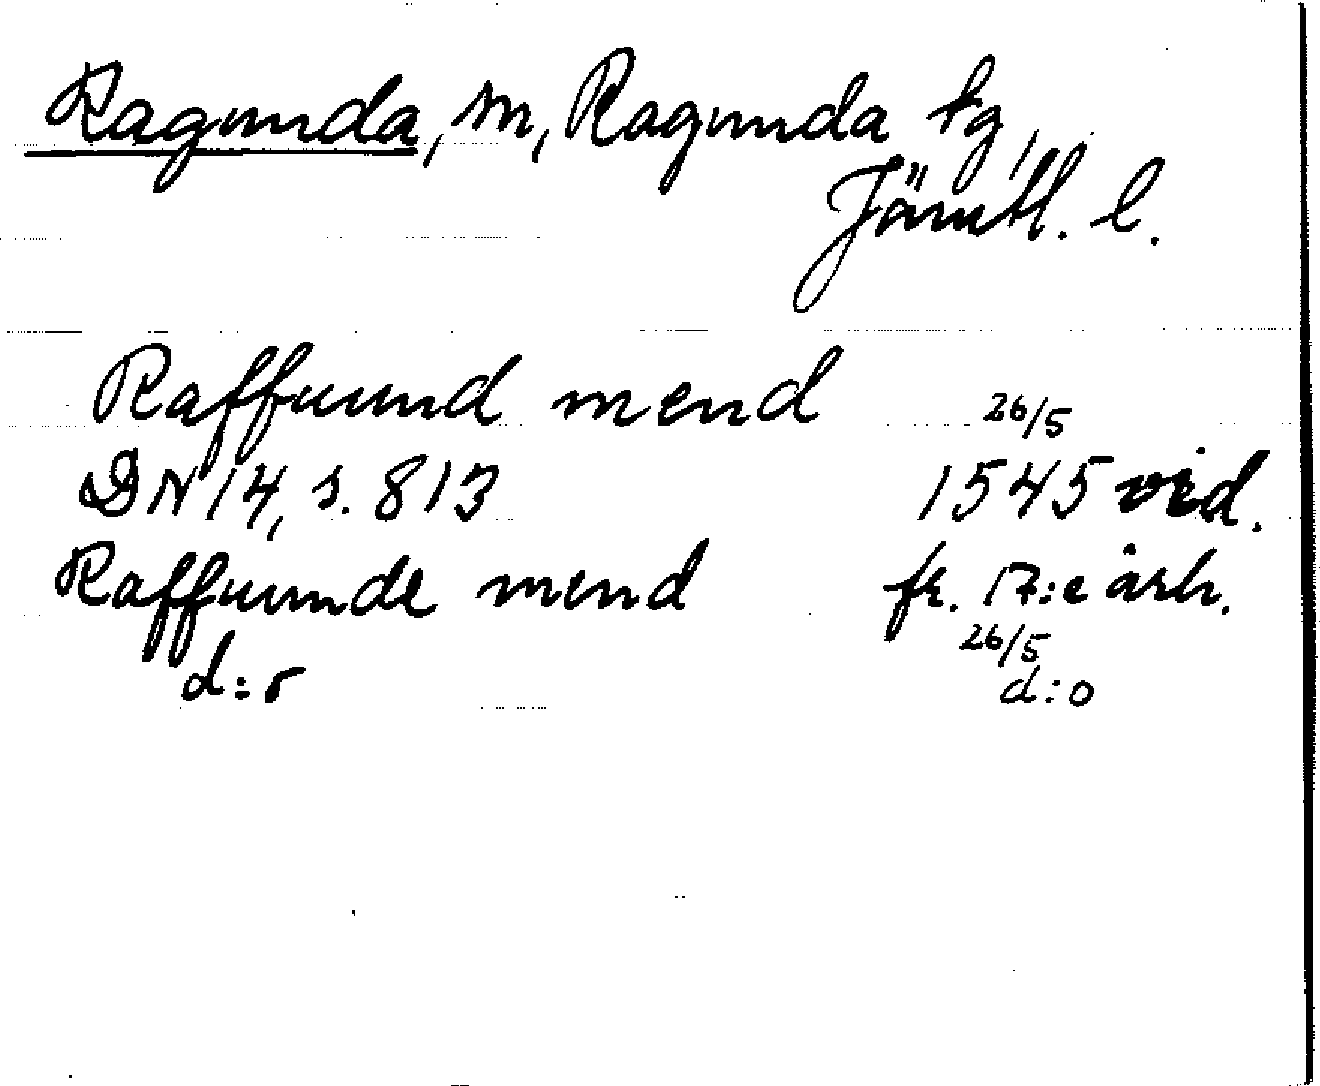 Ragunda, sn, Ragunda tg,
Jämtl. l.
Raffuund mend 26/5
DN 14, s. 813 1545 vid.
Raffuunde mend fr. 17:e årh.
26/5
d:o d:o